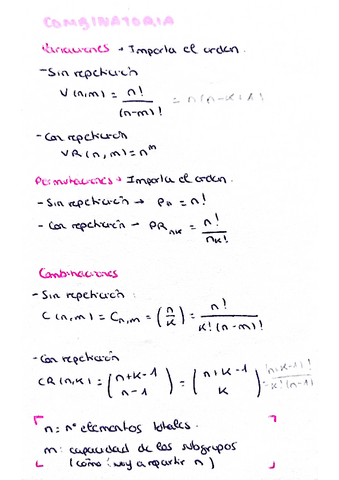 COMBINATORIA
Variaciones → Importa el orden.
- Sin repetición
V(n,m) = n! / (n-m)!
- Con repetición
VR(n,m) = n^m
Permutaciones → Importa el orden.
- Sin repetición → Pn = n!
- Con repetición - PR nk = n! / nk!
Combinaciones
- Sin repetición :
C(n,m) = Cn,m = (n/k) = n! / k!(n-m)!
- Con repetición
CR(n,k) = (n+k-1 / n-1) = (n+k-1 / k)
n: nº elementos totales.
m: capacidad de los subgrupos
(cómo voy a repartir n)